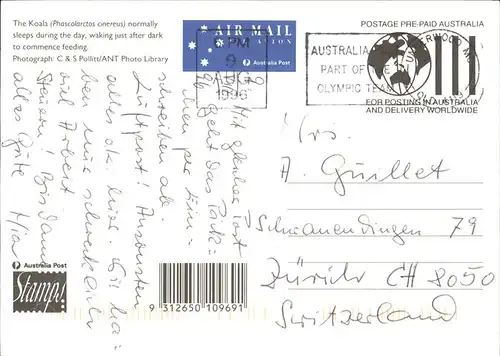 The Koala (Phascolarctos cinereus) normally
sleeps during the day, waking just after dark
to commence feeding.
Photograph: C & S Pollitt/ANT Photo Library
AIR MAIL
PAR AVION
Australia Post
POSTAGE PRE-PAID AUSTRALIA
6 PM
1996
AUSTRALIA
PART OF THE
OLYMPIC TEAM
FOR POSTING IN AUSTRALIA
AND DELIVERY WORLDWIDE
Mit gleicher Post
geht das Päck-
chen per
schreiben ab.
Luftpost! Ansonsten
alles o.k. hier. Wir ha-
ben nur schrecklich
viel Arbeit
Steuern! Bis dann
alles Gute
A. Guillet
Schwamendingen 79
Zürich CH 8050
Switzerland
Australia Post
Stamp!
9 312650 109691